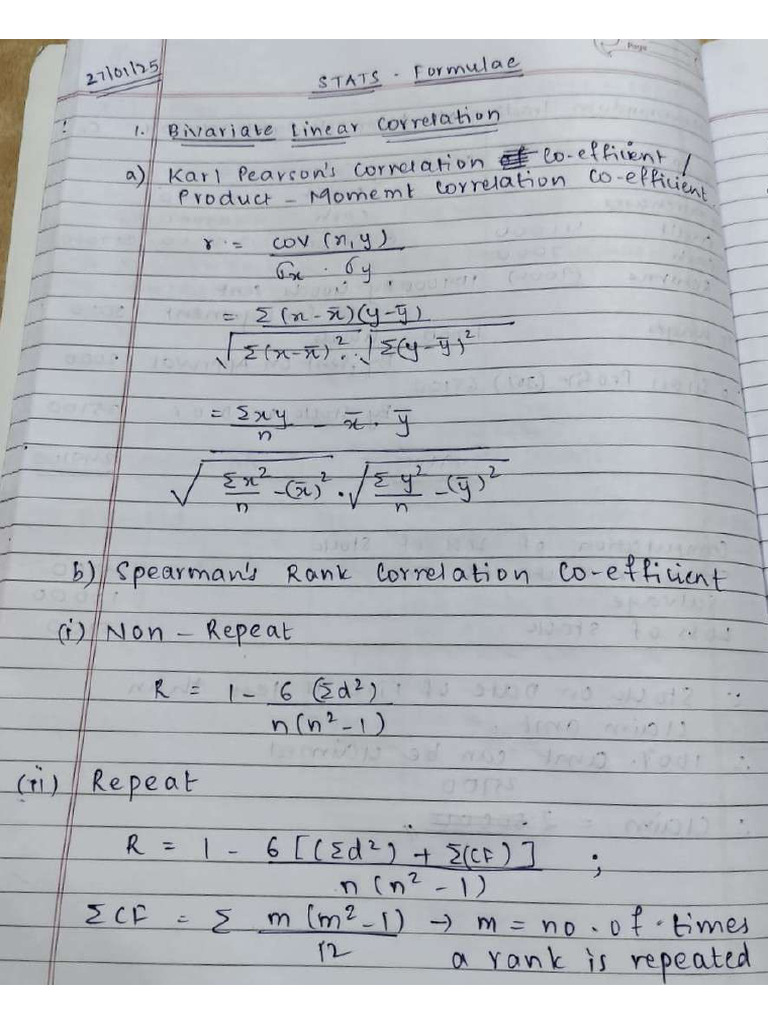 Page
27/01/25
STATS - Formulae
1. Bivariate Linear Correlation
a) Karl Pearson's Correlation Co-efficient /
Product - Moment Correlation Co-efficient
r = cov (x,y)
σx . σy
= Σ(x-x̄)(y-ȳ)
√Σ(x-x̄)² . √Σ(y-ȳ)²
= Σxy/n - x̄ . ȳ
√Σx²/n -(x̄)² . √Σy²/n -(ȳ)²
b) Spearman's Rank Correlation Co-efficient
(i) Non - Repeat
R = 1 - 6 (Σd²)
n(n²-1)
(ii) Repeat
R = 1 - 6 [(Σd²) + Σ(CF)] ;
n(n²-1)
ΣCF = Σ m(m²-1) → m = no. of times
12 a rank is repeated